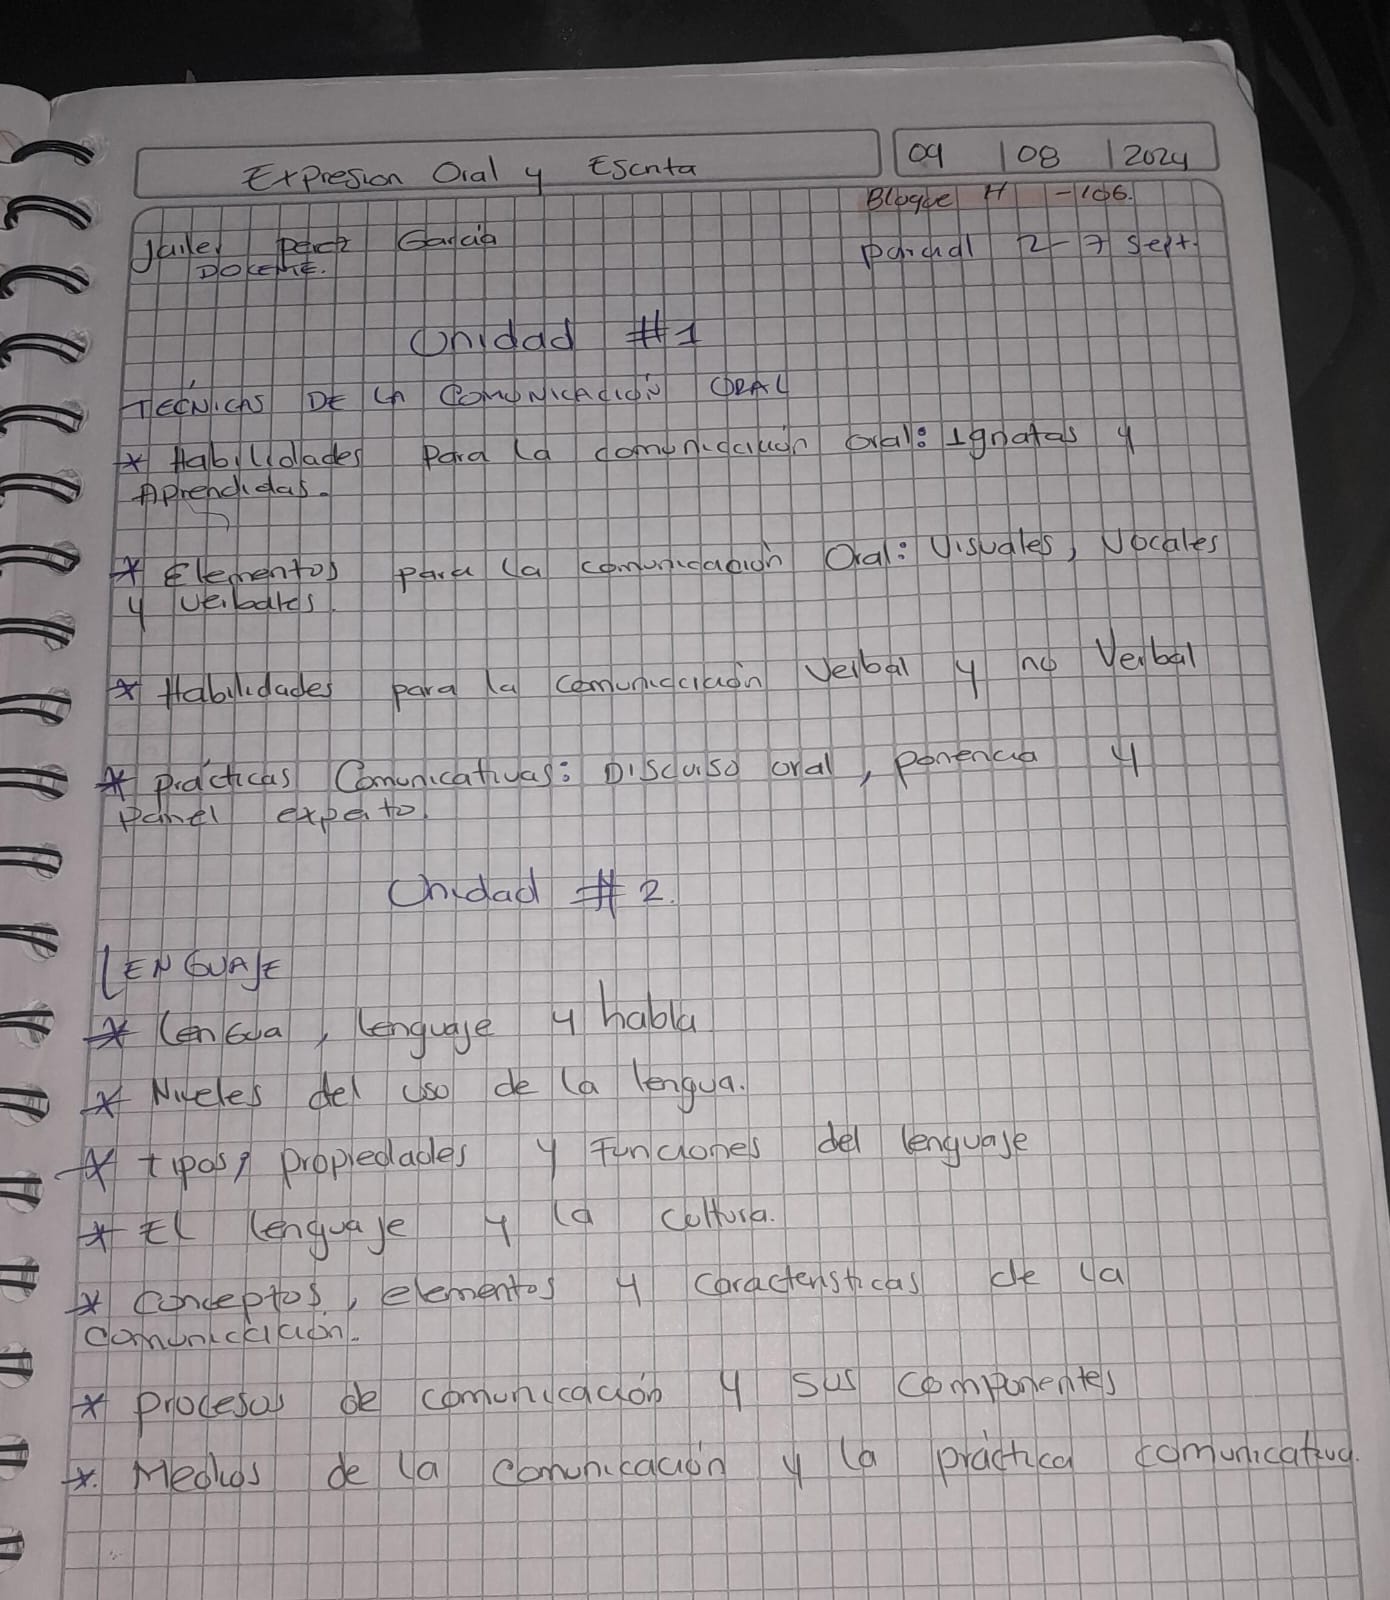 Expresion Oral y Escrita
09 / 08 / 2024
Bloque H - 106.
Jailer Perez Garcia
Parcial 2-7 Sept.
DOCENTE.
Unidad #1
TECNICAS DE LA COMUNICACIÓN ORAL
* Habilidades Para la comunicación Oral: Ignatas y
Aprendidas.
* Elementos para la comunicación Oral: Visuales, Vocales
y verbales.
* Habilidades para la comunicación Verbal y no Verbal
* Prácticas Comunicativas: Discurso oral, ponencia y
Panel experto.
Unidad #2.
LENGUAJE
* Lengua, lenguaje y habla
* Niveles del uso de la lengua.
* tipos, propiedades y Funciones del lenguaje
* El lenguaje y la cultura.
* Conceptos, elementos y Caracteristicas de la
Comunicación.
* Procesos de comunicación y sus componentes
* Medios de la Comunicación y la práctica comunicativa.